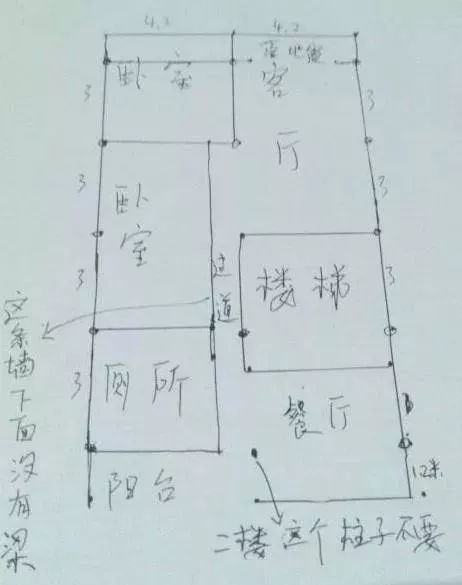 4.2
4.2
卧室
客厅
3
3
3
3
卧室
3
3
3
过道
楼梯
厕所
餐厅
阳台
二楼这个柱子不要
这条墙下面没有梁